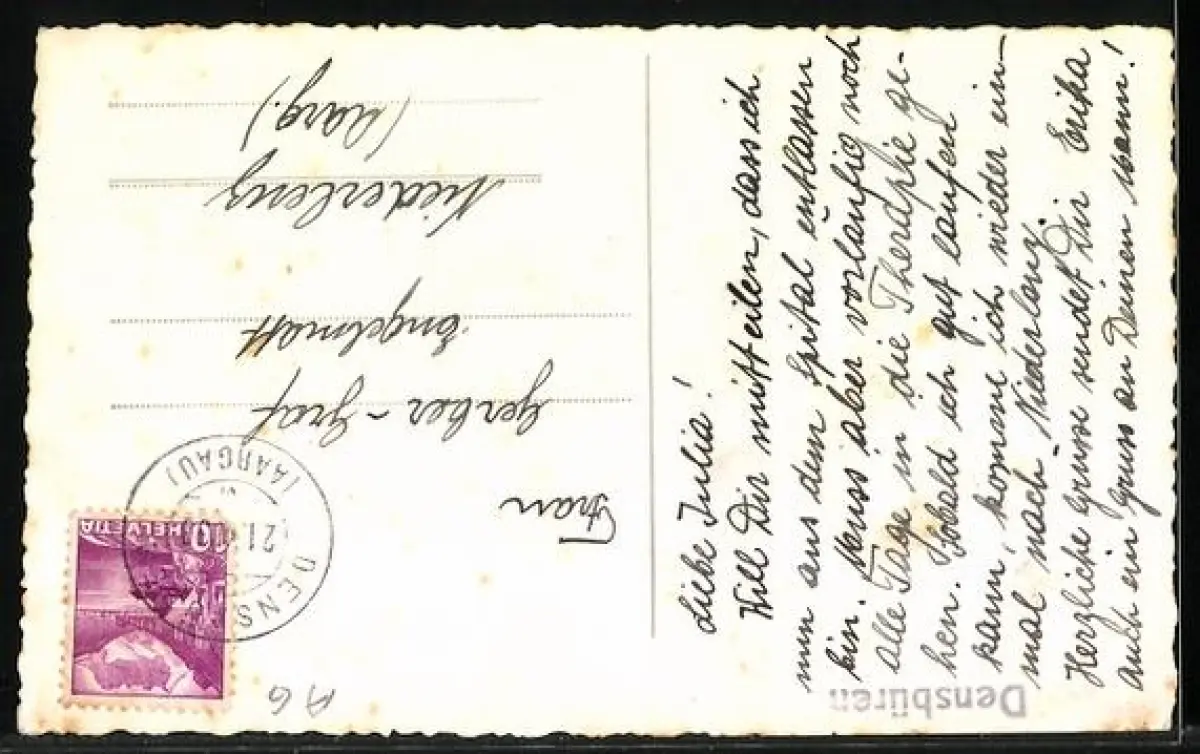 Liebe Julia!
Will Dir mitteilen, dass ich
nun aus dem Spital entlassen
bin. Muss aber vorläufig noch
alle Tage in die Therapie ge-
hen. Sobald ich gut laufen
kann, komme ich wieder ein-
mal nach Niederlenz.
Herzliche Grüsse sendet Dir Erika
auch ein Gruss an Deinen Mann!
Frau
Gerber-Graf
Engelmatt
Niederlenz
(Aarg.)
DENSBÜREN
(AARGAU)
HELVETIA
10
Densbüren
AG